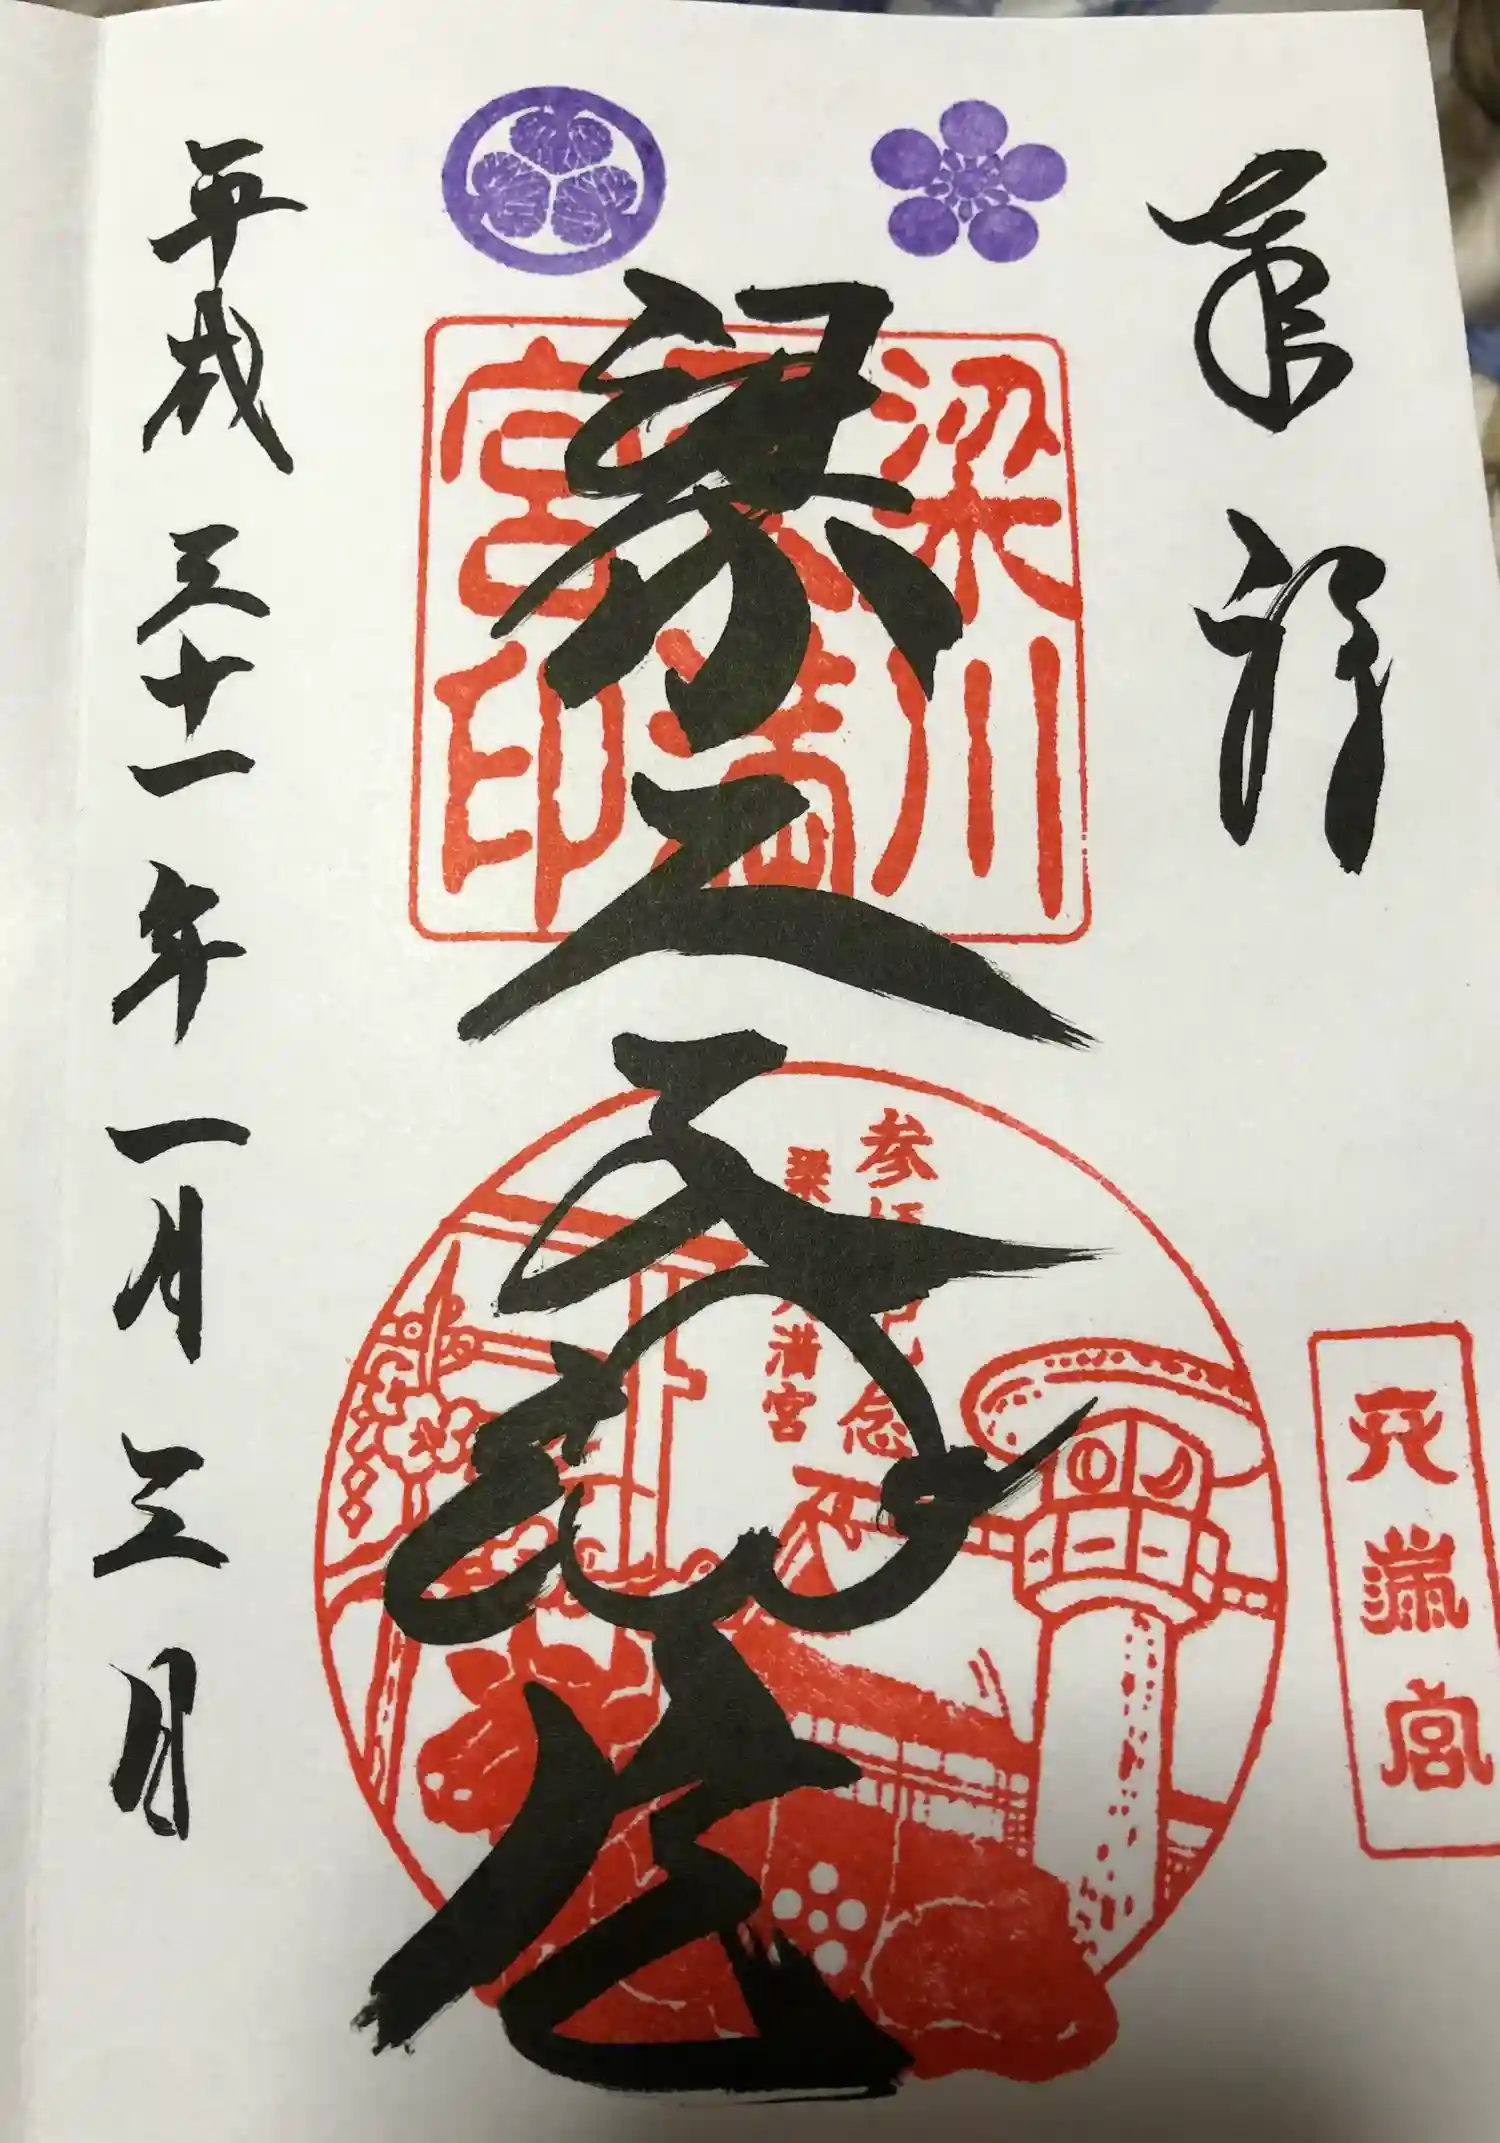 奉拝
天満宮
梁川天満宮
梁川
天満
宮印
参拝記念
梁川天満宮
平成三十一年一月三日